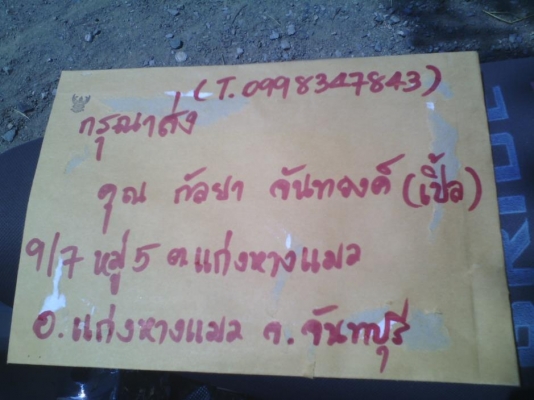 (T. 0998347843)
กรุณาส่ง
คุณ กัลยา จันทองค์ (เปิ้ล)
9/7 หมู่ 5 ต.แก่งหางแมว
อ.แก่งหางแมว จ.จันทบุรี